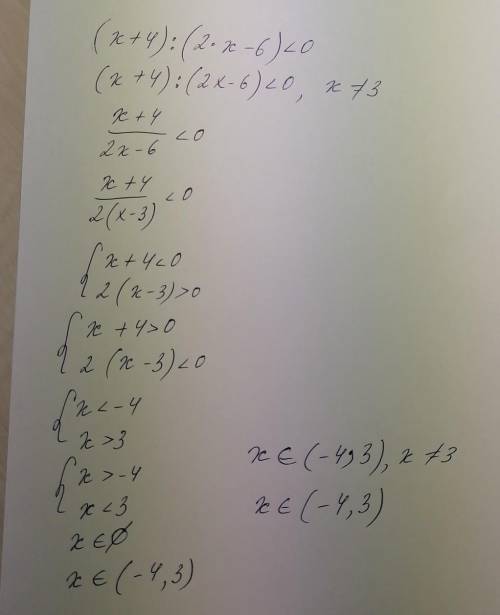 (x+4):(2·x-6)<0
(x+4):(2x-6)<0, x≠3
x+4
2x-6 <0
x+4
2(x-3) <0
{ x+4<0
2(x-3)>0
{ x+4>0
2(x-3)<0
{ x<-4
x>3
{ x>-4
x<3
x∈∅
x∈(-4,3)
x∈(-4,3), x≠3
x∈(-4,3)